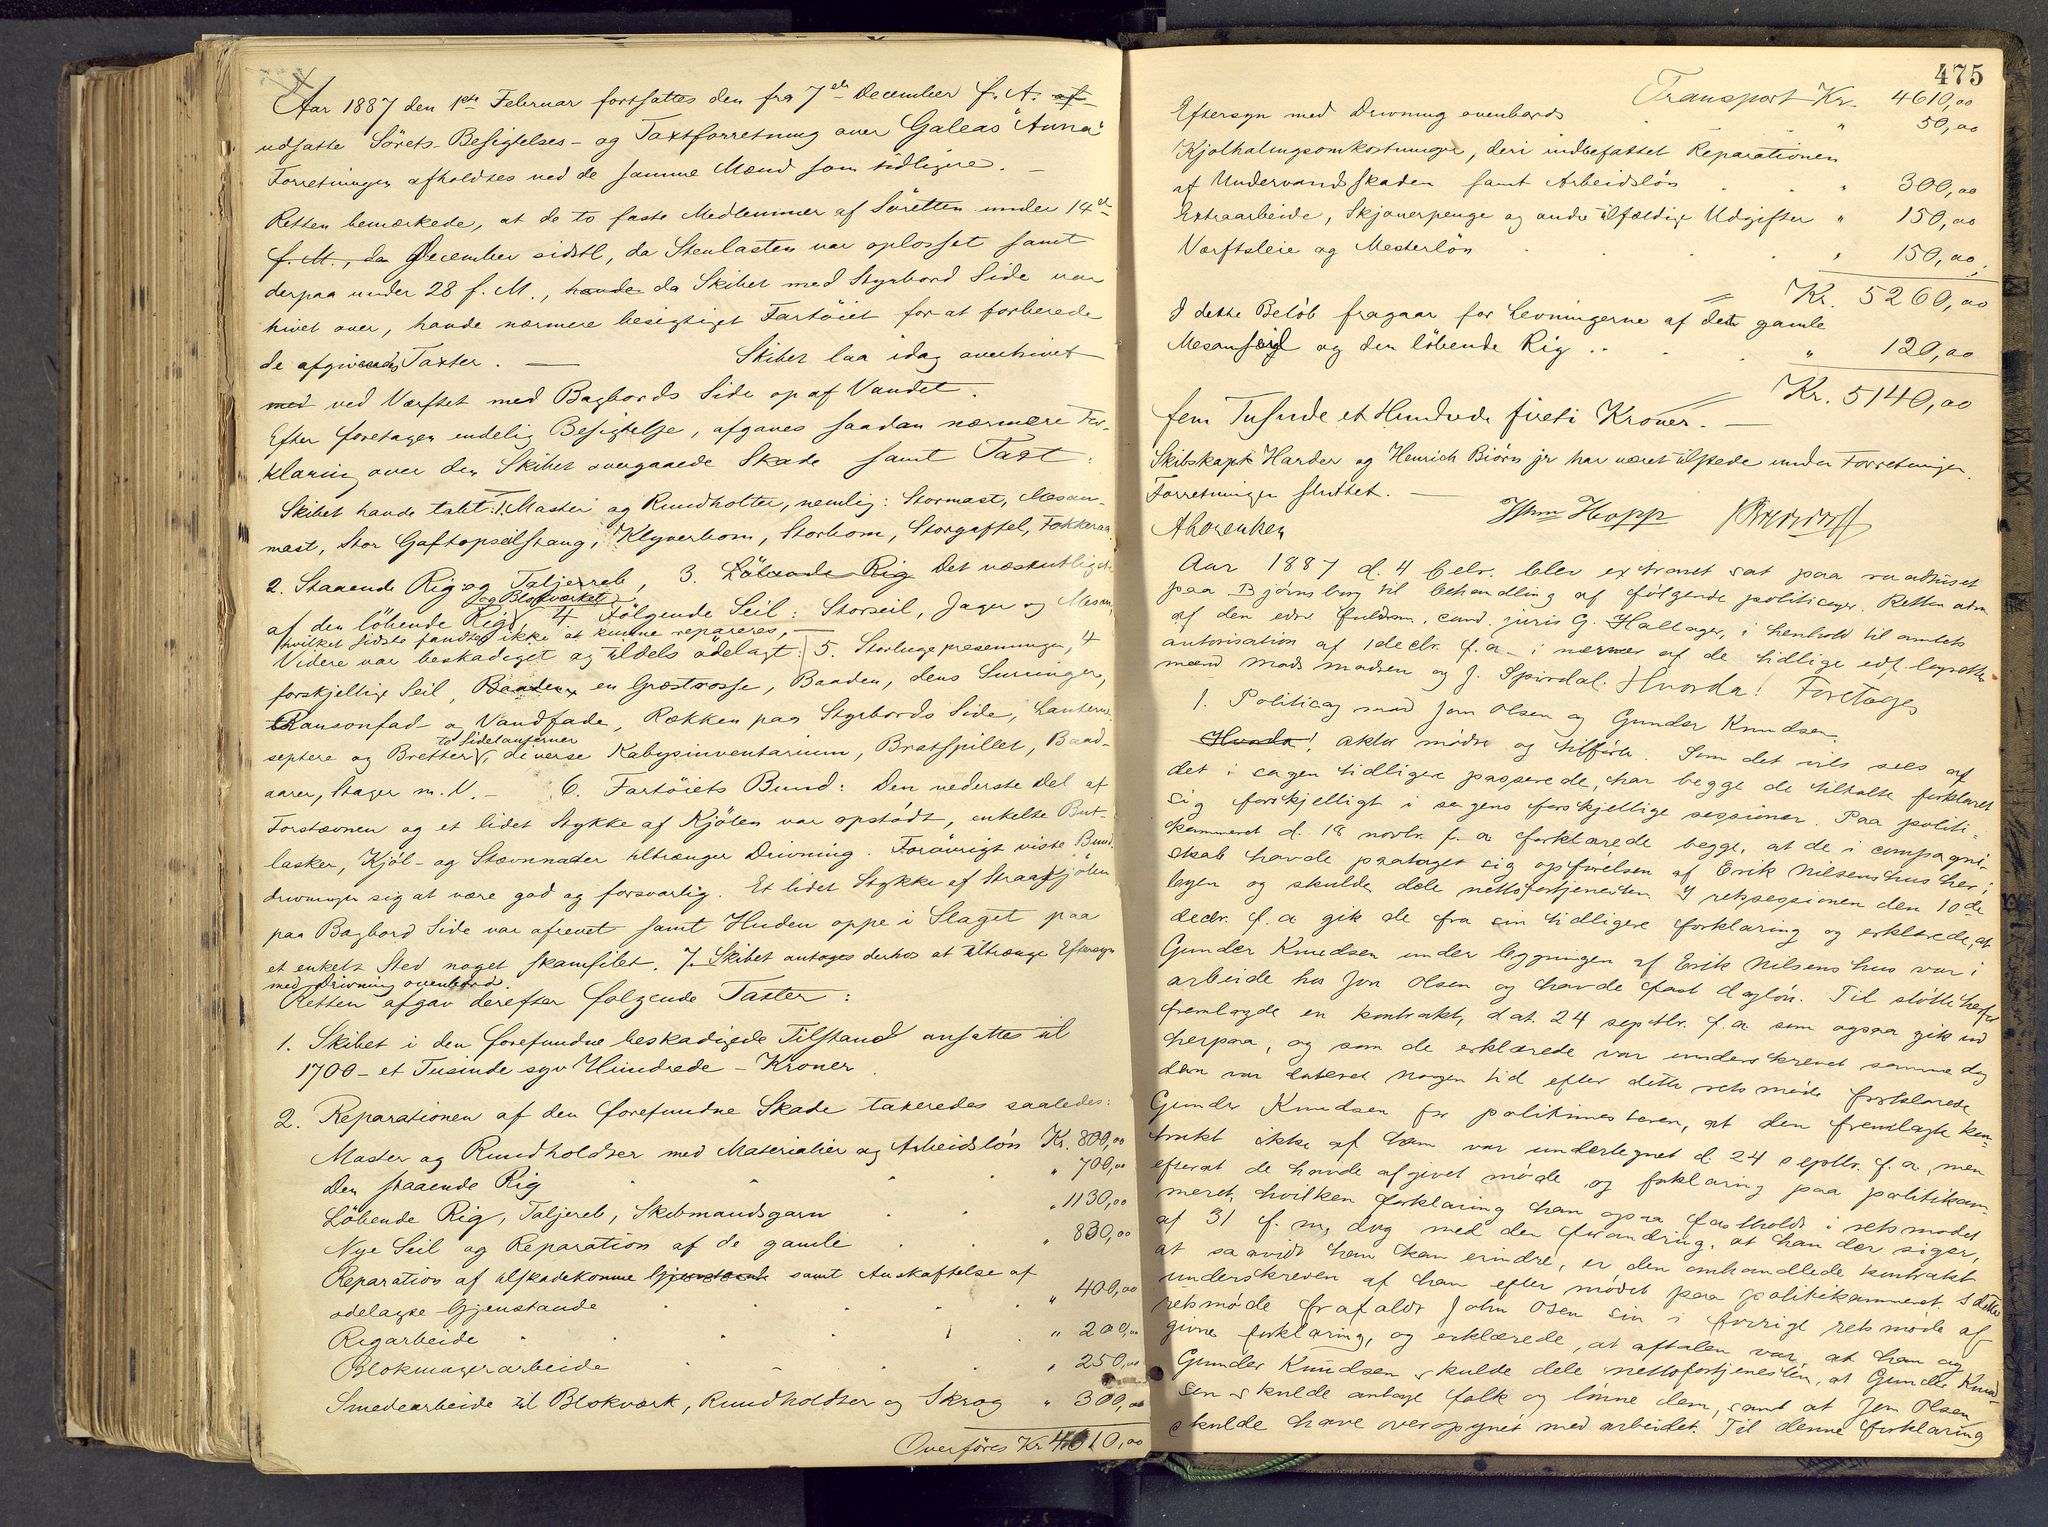 Aar 1887 den 1ste Februar fortsattes den fra 7de December f. A. af
udsatte Sörets- Besigtelses- og Taxtforretning over Galeas "Anna"
Forretningen afholdtes ved de samme Mænd som tidligere. —
Retten bemærkede, at de to faste Medlemmer af Söretten under 14de
f. M., da December sidstl, da Stenlasten var oplosset samt
derpaa under 28 f. M., havde da Skibet med Styrbord Side var
hivet over, havde nærmere besigtiget Fartöiet for at forberede
de afgivende Taxter. — Skibet laa idag overhivet
med ved Værftet med Bagbords Side op af Vandet.
Efter foretagen endelig Besigtelse, afgaves saadan nærmere For-
klaring over den Skibet overgaaede Skade samt Taxt:
Skibet havde tabt: 1. Master og Rundholter, nemlig: Stormast, Mesan-
mast, Stor Gaftopseilstang, Klyverbom, Storbom, Storgaffel, Fokkeraa
2. Staaende Rig og Taljereb, 3. Löbende Rig Det væsentligste
og Blokværket
af den löbende Rig, 4 Fölgende Seil: Storseil, Jager og Mesan,
hvilket sidste fandtes ikke at kunne repareres, —
Videre var beskadiget og tildels ödelagt: 5. Storlugepresenninger, 4
forskjellige Seil, Baaden, en Græstrosse, Baaden, dens Surringer,
Ransonfad og Vandfade, Rækken paa Styrbords Side, Lanterne
to Sidelanterner
septere og Bretter, diverse Kabysinventarium, Bratspillet, Baad-
aarer, Stager m. V. — 6. Fartöiets Bund: Den nederste Del af
Forstævnen og et lidet Stykke af Kjölen var opstödt, enkelte But-
lasker, Kjöl- og Stævnnader tiltrænger Drivning. Forövrigt viste Bund
drivningen sig at være god og forsvarlig. Et lidet Stykke af Straakjölen
paa Bagbord Side var afrevet samt Huden oppe i Slaget paa
et enkelt Sted noget skamfilet. 7. Skibet antages derhos at tiltrænge Eftersyn
med Drivning ovenbord.
Retten afgav derefter fölgende Taxter:
1. Skibet i den forefundne beskadigede Tilstand ansattes til
1700 - et Tusinde syv Hundrede - Kroner.
2. Reparationen af den forefundne Skade taxeredes saaledes:
Master og Rundholdter med Materialier og Arbeidslön Kr. 800,00
Den staaende Rig " 700,00
Löbende Rig, Taljereb, Skibmandsgarn " 1130,00
Nye Seil og Reparation af de gamle " 830,00
Reparation af tilskadekomne Gjenstande samt Anskaffelse af
ödelagte Gjenstande " 400,00
Rigarbeide " 200,00
Blokmagerarbeide " 250,00
Smedearbeide til Blokværk, Rundholdter og Skrog " 300,00
Overföres Kr 4610,00
475
Transport Kr. 4610,00
Eftersyn med Drivning ovenbords " 50,00
Kjölhalingsomkostninger, deri indbefattet Reparationen
af Undervandsskaden samt Arbeidslön " 300,00
Extraarbeide, Skjönerpenge og andre tilfældige Udgifter " 150,00
Værftsleie og Mesterlön " 150,00
Kr. 5260,00
I dette Belöb fragaar for Levningerne af det gamle
Mesanseil og den löbende Rig .. " 120,00
Kr. 5140,00
fem Tusinde et Hundrede firti Kroner. —
Skibskapt Harder og Henrich Biörn jr har været tilstede under Forretningen.
Forretningen sluttet. —
Hopp
ALorenzen
Aar 1887 d. 4 febr. blev extraret sat paa raadhuset
paa Bjørnsborg til behandling af følgende politisager. Retten adm.
af den edsv. fuldm. cand. juris G. Hallager, i henhold til amtets
autorisation af 1 decbr. f. a. i nærvær af de tidlige edf. lagrettes-
mænd Mads Madsen og J. Spirdal. Hvorda! Foretoges
1. Politisag mod Jon Olsen og Gunder Knudsen
Hvorda! aktor mødte og tilførte. Som det vils sees af
det i sagen tidligere passerede, har begge de tiltalte forklaret
sig forskjelligt i sagens forskjellige sessioner. Paa politi-
kammeret d. 18 novbr. f. a. forklarede begge, at de i compagni-
skab havde paataget sig opførelsen af Erik Nilsens hus her i
byen og skulde dele nettofortjenesten. I retssessionen den 10de
decbr. f. a. gik de fra sin tidligere forklaring og erklærede, at
Gunder Knudsen under bygningen af Erik Nilsens hus var i
arbeide hos Jon Olsen og havde fast dagløn. Til støtte herfor
fremlagde en kontrakt, dat. 24 septbr. f. a. som ogsaa gik ud
herpaa, og som de erklærede var underskrevet samme dag
den var dateret. Nogen tid efter dette retsmøde forklarede
Gunder Knudsen for politimesteren, at den fremlagte kon-
trakt ikke af ham var undertegnet d. 24 septbr. f. a., men
efterat de havde afgivet møde og forklaring paa politikam-
meret, hvilken forklaring han ogsaa fastholdt i retsmødet
af 31 f. m., dog med den forandring, at han der siger,
at saavidt han kan erindre, er den omhandlede kontrakt
underskreven af han efter mødet paa politikammeret. I dette
retsmøde frafaldt John Olsen sin i forrige retsmøde af
givne forklaring, og erklærede, at aftalen var, at han og
Gunder Knudsen skulde dele nettofortjenesten, at Gunder Knud-
sen skulde antage folk og lønne dem, samt at Jon Olsen
skulde have overopsynet med arbeidet. Til denne forklaring